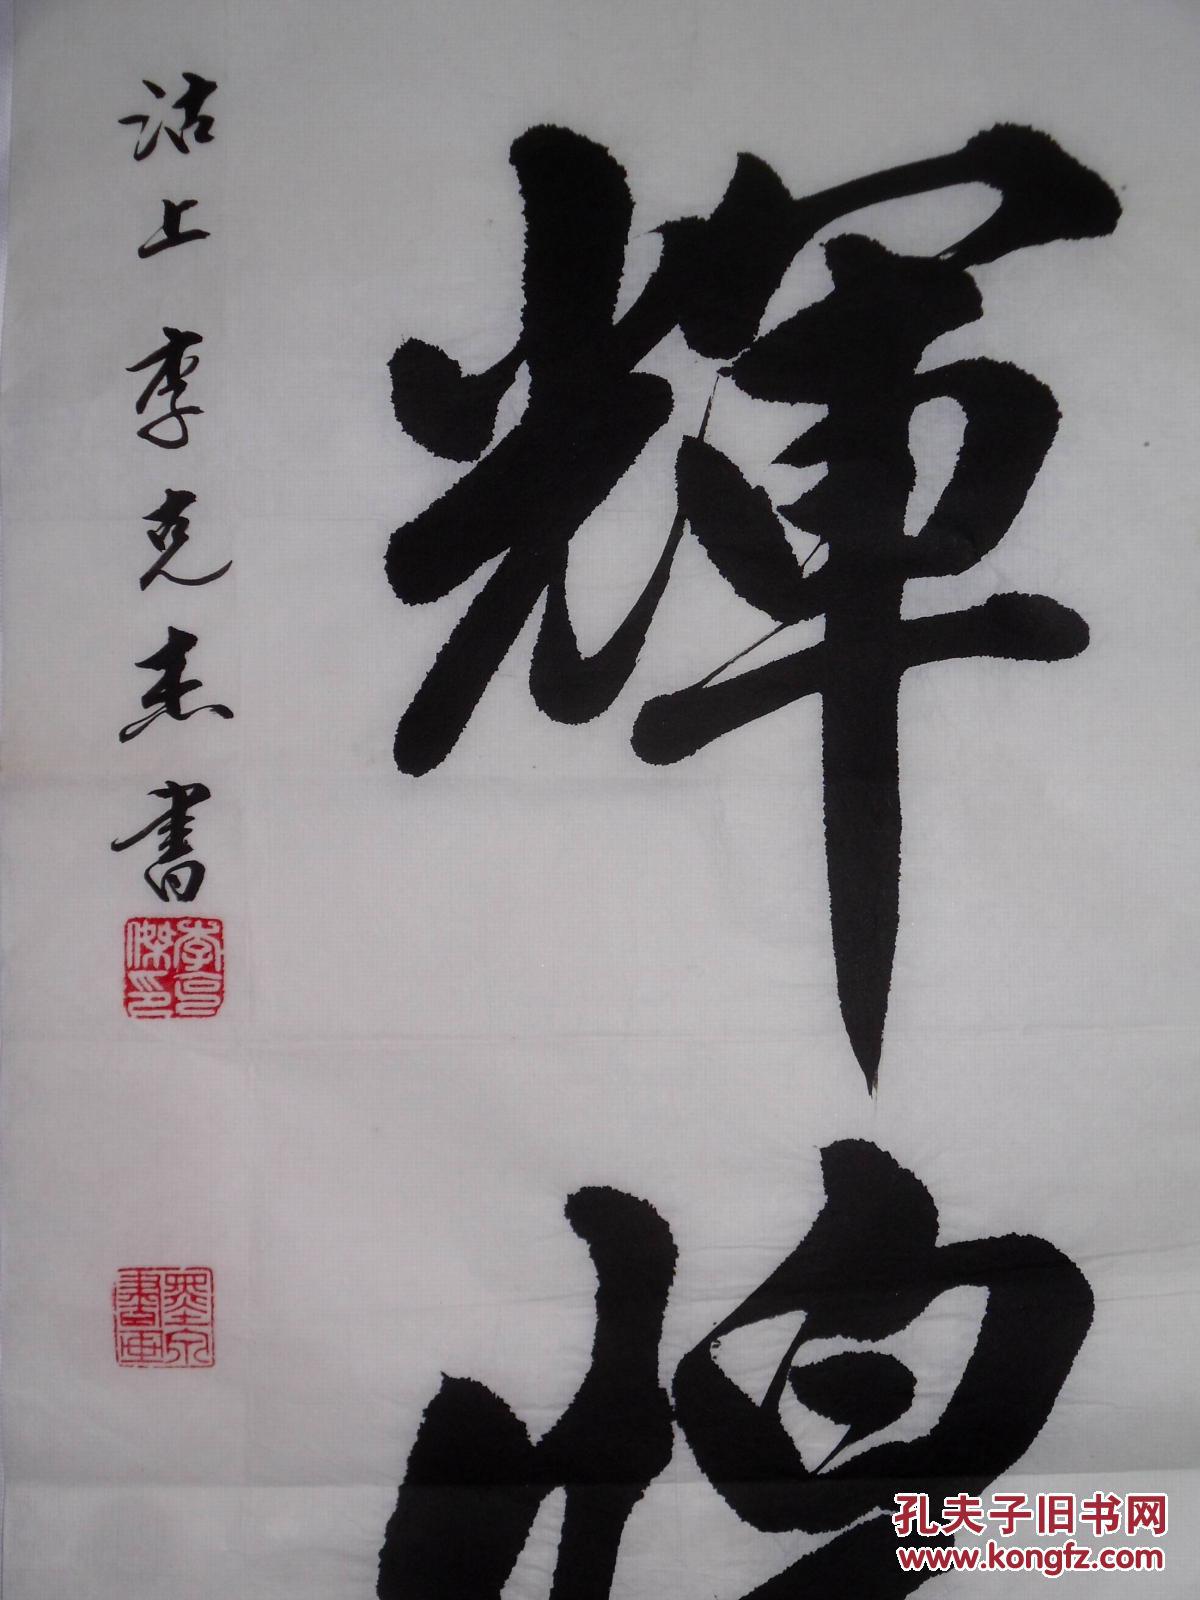 輝煌
沽上李克杰書
李克傑印
墨泉書画
孔夫子旧书网
www.kongfz.com